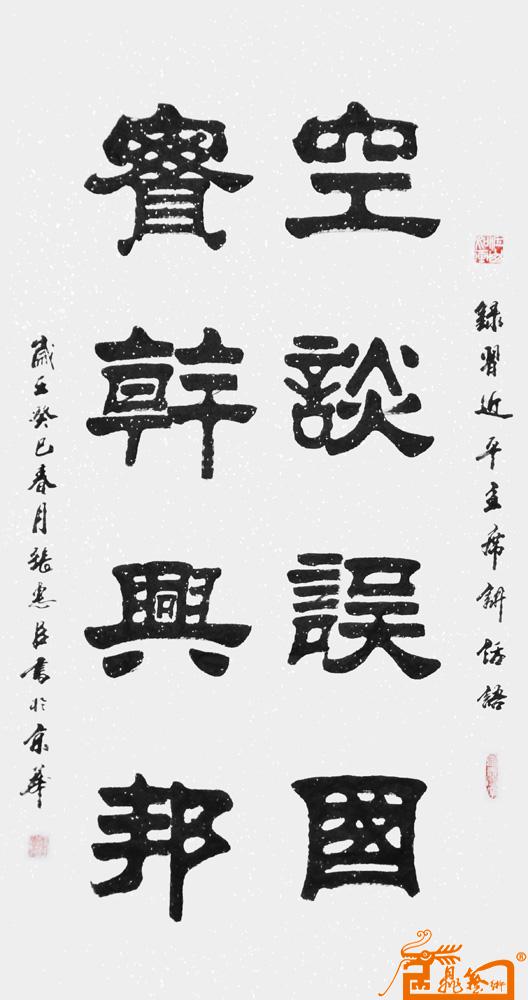 錄習近平主席講話語
空談誤國
實幹興邦
歲在癸巳春月張惠臣書於京華